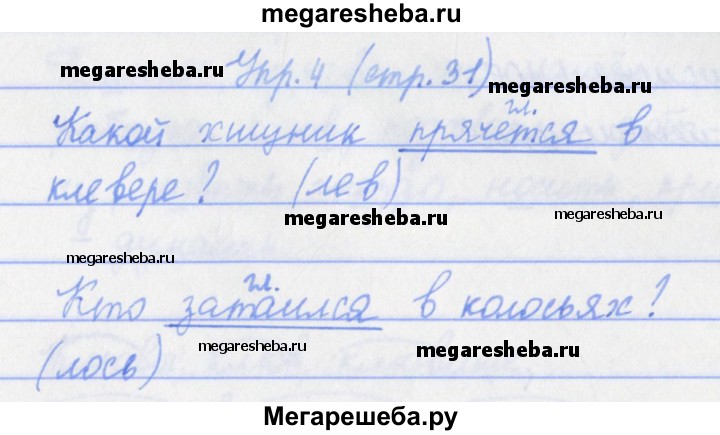 megaresheba.ru
Упр. 4 (стр. 31)
megaresheba.ru
megaresheba.ru
гл.
Какой хищник прячется в
клевере? (лев)
megaresheba.ru
megaresheba.ru
megaresheba.ru
гл.
Кто затаился в колосьях?
megaresheba.ru
megaresheba.ru
(лось)
Мегарешеба.ру